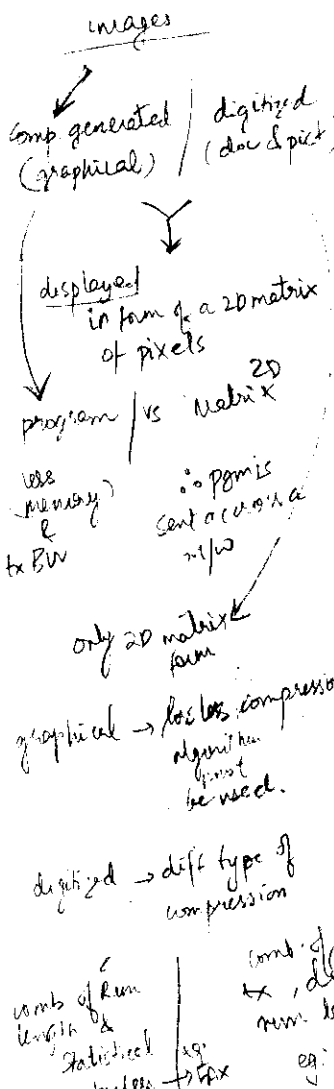 images
comp. generated
(graphical)
digitized
(doc & pict
displayed
in form of a 2D matrix
of pixels
program vs Matrix 2D
less
memory
&
tx BW
∴ pgm is
sent across a
n/w
only 2D matrix
form
graphical → lossless compression
algorithm
must
be used.
digitized → diff type of
compression
comb of Run
length &
Statistical
eg: → FAX
comb. of
tx, di
run le
eg: